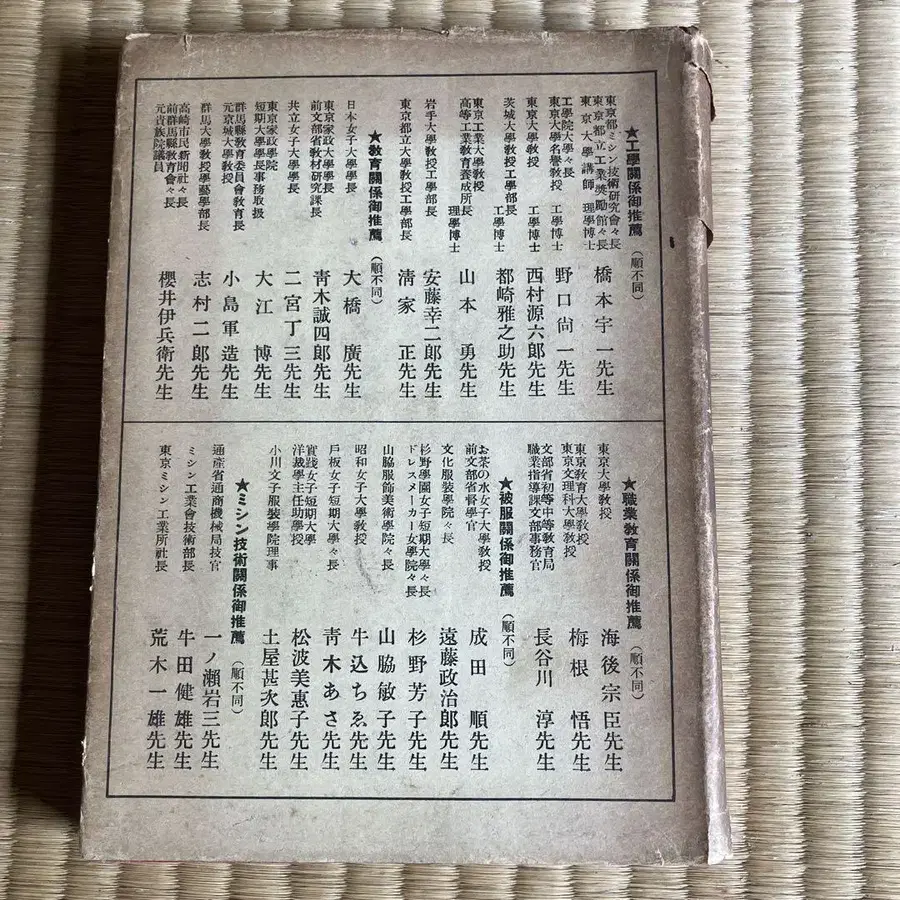 ★工學關係御推薦（順不同）
東京都ミシン技術研究會々長
東京都立工業奬勵館々長
東京大學講師 理學博士 橋本宇一先生
工學院大學々長
東京大學名譽教授 工學博士 野口尙一先生
東京大學教授 工學博士 西村源六郎先生
茨城大學教授工學部長 工學博士 都崎雅之助先生
東京工業大學教授
高等工業教育養成所長 理學博士 山本勇先生
岩手大學教授工學部長 安藤幸二郎先生
東京都立大學教授工學部長 淸家正先生
★教育關係御推薦（順不同）
日本女子大學學長 大橋廣先生
東京家政大學學長
前文部省教材研究課長 靑木誠四郎先生
共立女子大學學長 二宮丁三先生
東京家政學院
短期大學學長事務取扱 大江博先生
群馬縣教育委員會教育長
元京城大學教授 小島軍造先生
群馬大學教授學藝學部長 志村二郎先生
高崎市民新聞社々長
前群馬縣教育會々長
元貴族院議員 櫻井伊兵衛先生
★職業教育關係御推薦（順不同）
東京大學教授 海後宗臣先生
東京教育大學教授
東京文理科大學教授 梅根悟先生
文部省初等中等教育局
職業指導課文部事務官 長谷川淳先生
★被服關係御推薦（順不同）
お茶の水女子大學教授
前文部省督學官 成田順先生
文化服裝學院々長 遠藤政治郎先生
杉野學園女子短期大學々長
ドレスメーカー女學院々長 杉野芳子先生
山脇服飾美術學院々長 山脇敏子先生
昭和女子大學教授 牛込ちゑ先生
戶板女子短期大學々長 靑木あさ先生
實踐女子短期大學
洋裁學主任助學授 松波美惠子先生
小川文子服裝學院理事 土屋甚次郎先生
★ミシン技術關係御推薦（順不同）
通產省通商機械局技官 一ノ瀨岩三先生
ミシン工業會技術部長 牛田健雄先生
東京ミシン工業所社長 荒木一雄先生